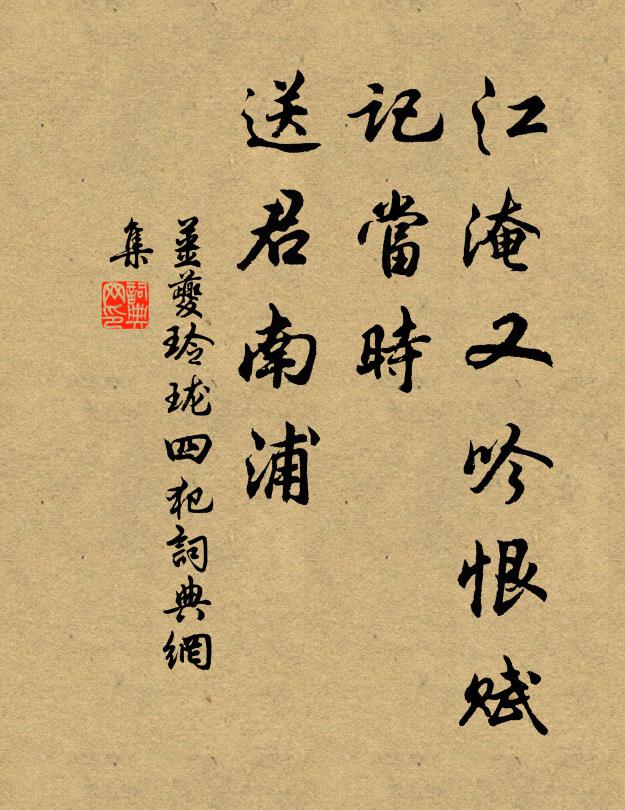 江淹又吟恨賦
記當時
送君南浦
姜夔玲珑四犯詞典網
集
詞典网印